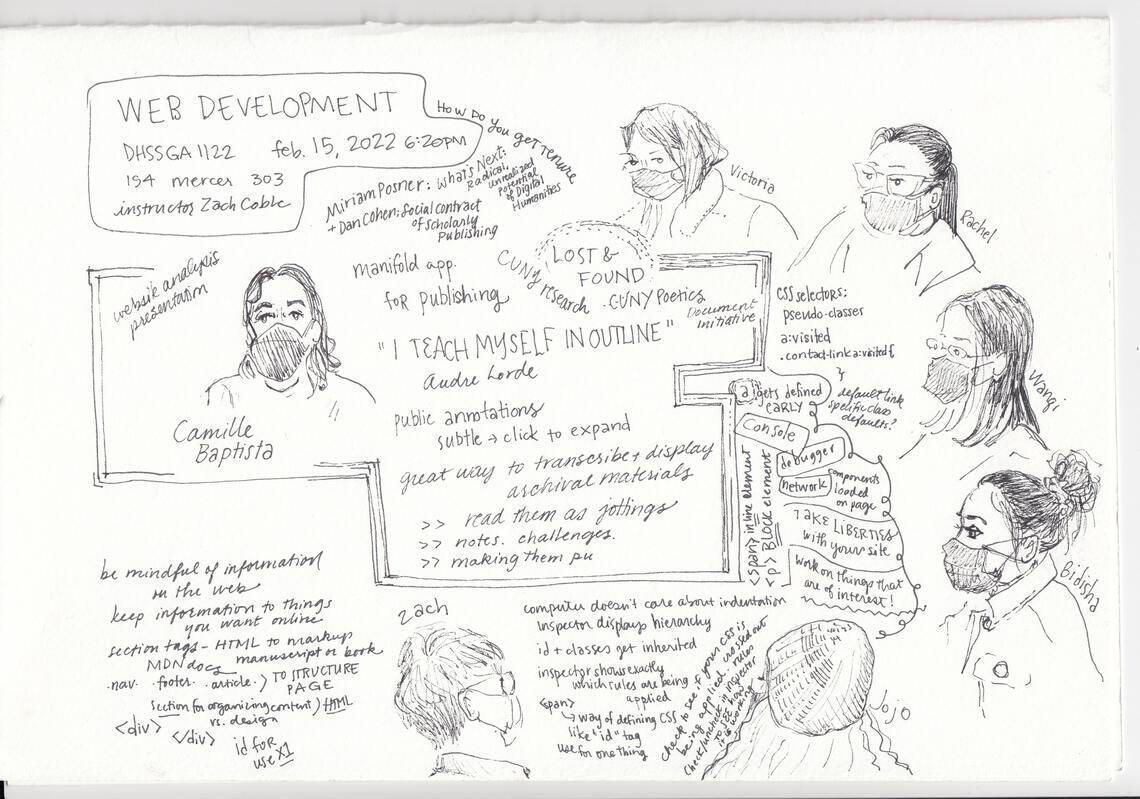 WEB DEVELOPMENT
DHSSGA 1122 feb. 15, 2022 6:20PM
194 mercer 303
instructor Zach Coble
HOW DO YOU get TENURE
Miriam Posner: What's Next:
Radical,
unrealized
Potential
of Digital
Humanities
+ Dan Cohen: Social Contract
of Scholarly
Publishing
Victoria
Rachel
website analysis
presentation
Camille
Baptista
manifold app.
for publishing
CUNY research
LOST &
FOUND
. CUNY Poetics
Document
Initiative
"I TEACH MYSELF IN OUTLINE"
Audre Lorde
public annotations
subtle → click to expand
great way to transcribe + display
archival materials
>> read them as jottings
>> notes. challenges.
>> making them pu
CSS selectors:
pseudo-classes
a:visited
.contact-link a:visited {
}
default link
specific class
defaults?
Wangi
a gets defined
EARLY
Console
debugger
network
components
loaded
on page
<span> inline element
<p> BLOCK element
TAKE LIBERTIES
with your site
work on things that
are of interest!
Bidisha
be mindful of information
on the web
keep information to things
you want online
section tags - HTML to markup
manuscript or book
MDN docs
.nav. .footer. .article. > TO STRUCTURE
PAGE
section for organizing content > HTML
vs. design
<div> </div>
id for
use x1
zach
computer doesn't care about indentation
inspector displays hierarchy
id + classes get inherited
inspector shows exactly
which rules are being
applied
<span>
↳ way of defining CSS
like "id" tag
use for one thing
check to see if your CSS is
being applied. crossed out
rules
check/uncheck in inspector
to see how
it is working
JoJo